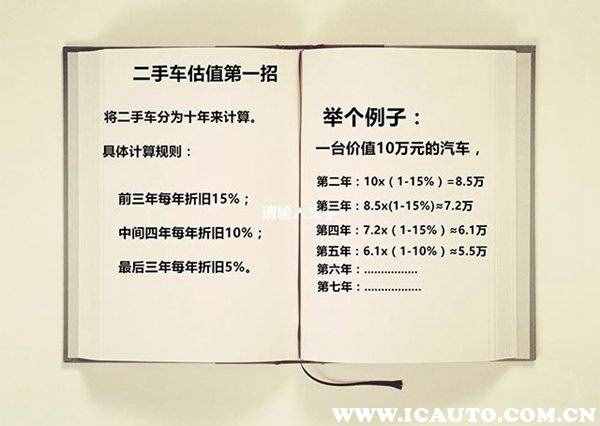 二手车估值第一招
将二手车分为十年来计算。
具体计算规则：
前三年每年折旧15%；
中间四年每年折旧10%；
最后三年每年折旧5%。
举个例子：
一台价值10万元的汽车，
第二年：10x（1-15%）=8.5万
第三年：8.5x(1-15%)≈7.2万
第四年：7.2x（1-15%）≈6.1万
第五年：6.1x（1-10%）≈5.5万
第六年：................
第七年：.................
WWW.ICAUTO.COM.CN